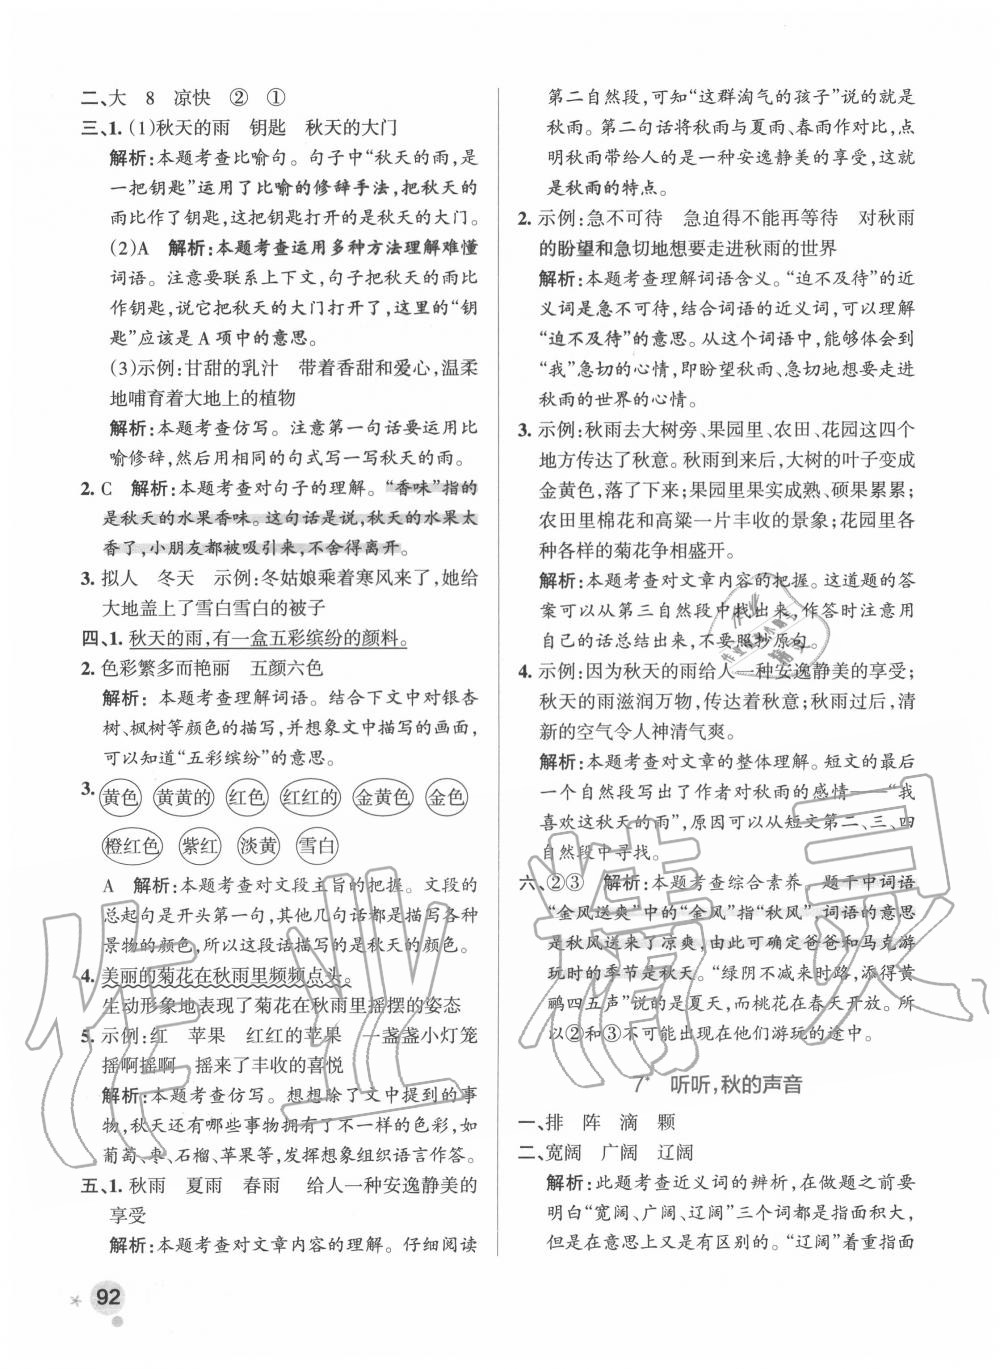 二、大　8　凉快　②　①
三、1. (1)秋天的雨　钥匙　秋天的大门
解析:本题考查比喻句。句子中“秋天的雨,是
一把钥匙”运用了比喻的修辞手法,把秋天的
雨比作了钥匙,这把钥匙打开的是秋天的大门。
(2)A　解析:本题考查运用多种方法理解难懂
词语。注意要联系上下文,句子把秋天的雨比
作钥匙,说它把秋天的大门打开了,这里的“钥
匙”应该是 A 项中的意思。
(3)示例:甘甜的乳汁　带着香甜和爱心,温柔
地哺育着大地上的植物
解析:本题考查仿写。注意第一句话要运用比
喻修辞,然后用相同的句式写一写秋天的雨。
2. C　解析:本题考查对句子的理解。“香味”指的
是秋天的水果香味。这句话是说,秋天的水果太
香了,小朋友都被吸引来,不舍得离开。
3. 拟人　冬天　示例:冬姑娘乘着寒风来了,她给
大地盖上了雪白雪白的被子
四、1. 秋天的雨,有一盒五彩缤纷的颜料。
2. 色彩繁多而艳丽　五颜六色
解析:本题考查理解词语。结合下文中对银杏
树、枫树等颜色的描写,并想象文中描写的画面,
可以知道“五彩缤纷”的意思。
3. 黄色　黄黄的　红色　红红的　金黄色　金色
橙红色　紫红　淡黄　雪白
A　解析:本题考查对文段主旨的把握。文段的
总起句是开头第一句,其他几句话都是描写各种
景物的颜色,所以这段话描写的是秋天的颜色。
4. 美丽的菊花在秋雨里频频点头。
生动形象地表现了菊花在秋雨里摇摆的姿态
5. 示例:红　苹果　红红的苹果　一盏盏小灯笼
摇啊摇啊　摇来了丰收的喜悦
解析:本题考查仿写。除了文中提到的事
物,秋天还有哪些事物拥有了不一样的色彩,如
葡萄、枣、石榴、苹果等,发挥想象组织语言作答。
五、1. 秋雨　夏雨　春雨　给人一种安逸静美的
享受
解析:本题考查对文章内容的理解。仔细阅读
第二自然段,可知“这群淘气的孩子”说的就是
秋雨。第二句话将秋雨与夏雨、春雨作对比,点
明秋雨带给人的是一种安逸静美的享受,这就
是秋雨的特点。
2. 示例:急不可待　急迫得不能再等待　对秋雨
的盼望和急切地想要走进秋雨的世界
解析:本题考查理解词语含义。“迫不及待”的近
义词是急不可待,结合词语的近义词,可以理解
“迫不及待”的意思。从这个词语中,能够体会到
“我”急切的心情,即盼望秋雨、急切地想要走进
秋雨的世界的心情。
3. 示例:秋雨去大树旁、果园里、农田、花园这四个
地方传达了秋意。秋雨到来后,大树的叶子变成
金黄色,落了下来;果园里果实成熟、硕果累累;
农田里棉花和高粱一片丰收的景象;花园里各
种各样的菊花争相盛开。
解析:本题考查对文章内容的把握。这道题的答
案可以从第三自然段中找出来,作答时注意用
自己的话总结出来,不要照抄原句。
4. 示例:因为秋天的雨给人一种安逸静美的享受;
秋天的雨滋润万物,传达着秋意;秋雨过后,清
新的空气令人神清气爽。
解析:本题考查对文章的整体理解。短文的最后
一个自然段写出了作者对秋雨的感情——“我
喜欢这秋天的雨”,可以从短文第二、三、四
自然段中寻找。
六、②③　解析:本题考查综合素养　题干中词语
“金风送爽”中的“金风”指“秋风”,词语的意思
是秋风送来了凉爽,由此可确定爸爸和马克游
玩时的季节是秋天。“绿阴不减来时路,添得黄
鹂四五声”说的是夏天,而桃花在春天开放。所
以②和③不可能出现在他们游玩的途中。
7*　听听,秋的声音
一、排　阵　滴　颗
二、宽阔　广阔　辽阔
解析:此题考查近义词的辨析,在做题之前要
明白“宽阔、广阔、辽阔”三个词都是指面积大,
但是在意思上又是有区别的。“辽阔”着重指面
92
作业精灵